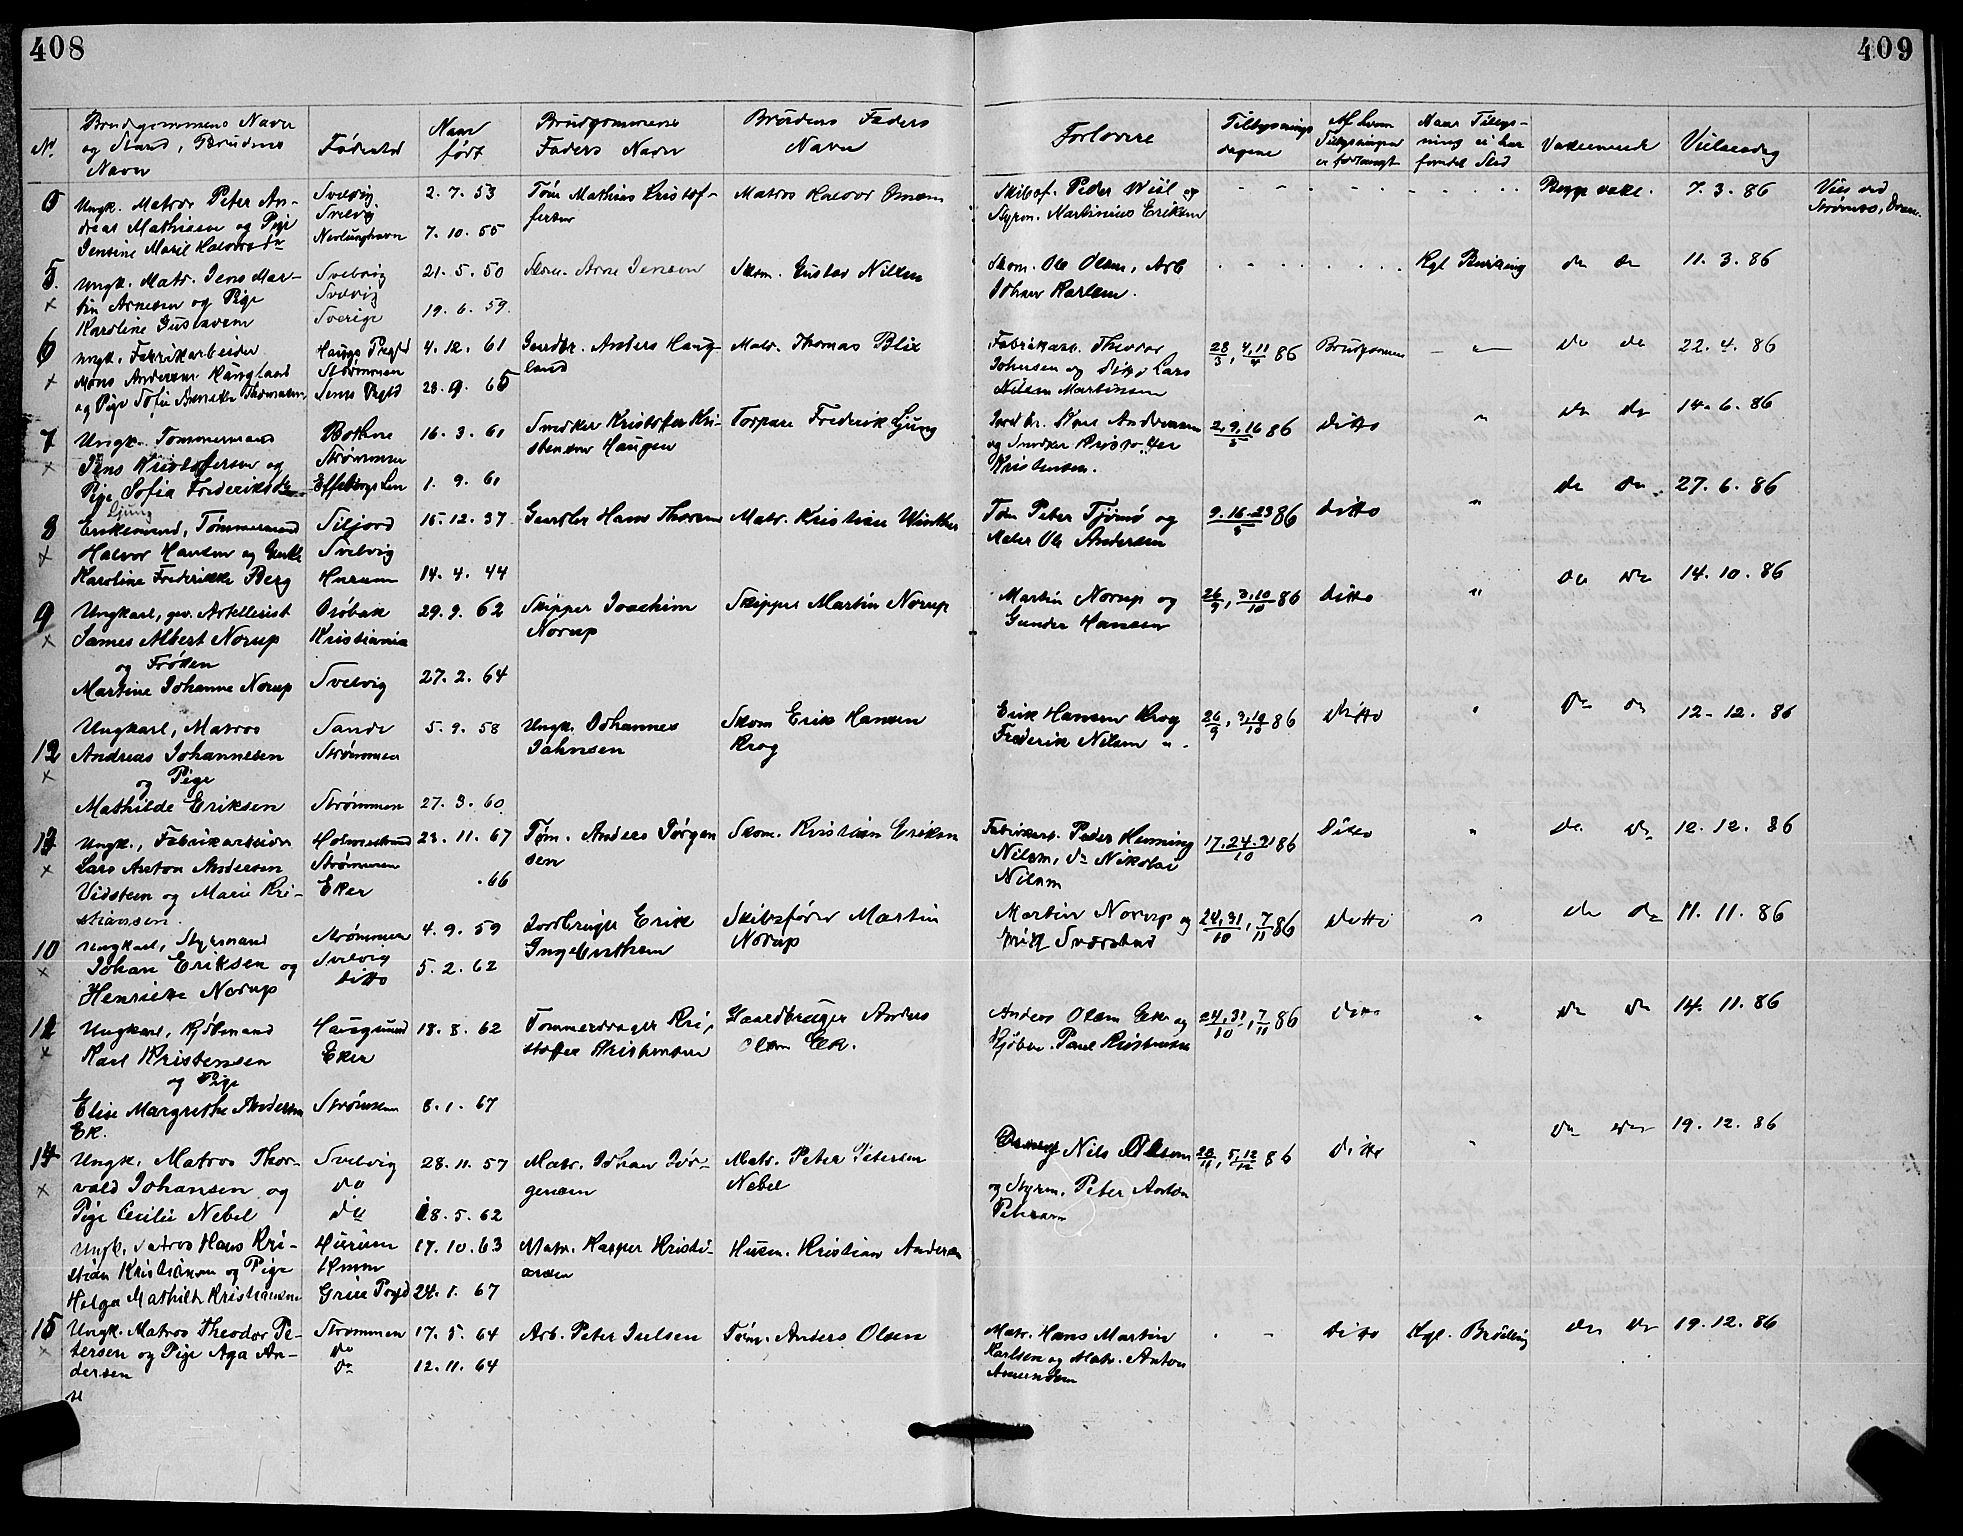 408
409
No.
Brudgommens Navn
og Stand, Brudens
Navn
Fødested
Naar
født
Brudgommens
Faders Navn
Brudens Faders
Navn
Forlovere
Tillysnings
dagene
Af hvem
Tillysningen
er forlangt
Naar Tillys-
ning ei har
fundet Sted
Vaccinerede
Vielsesdag
Ungk. Matros Peter An-
dreas Mathisen og Pige
Jensine Marie Halvorsdr
Svelvig
Svelvig
Nevlunghavn
2. 7. 53
7. 10. 55
Tøm Mathias Kristof-
fersen
Matros Halvor
Skibsf. Peder Wiil og
Styrm. Martinius Eriksen
Begge vakc.
7. 3. 86
Viet ved
Strømsø, Dram.
5.
x
Ungk. Matr. Jens Mar-
tin Arnesen og Pige
Karoline Gustavsen
Svelvig
Svelvig
Sverige
21. 5. 50
19. 6. 59.
Skom. Arne Jensen
Skom. Gustav Nilsen
Skom. Ole Olsen, Arb
Johan Karlsen.
Kgl Bevilling
do do
11. 3. 86
6
x
Ungk. Fabrikarbeider
Mons Andersen Haugland
og Pige Sofie Annette Thomasen
Haugs Prgld
Strømmen
Sems Prgld
4. 12. 61
28. 9. 65
Gaardbr. Anders Haug-
land
Matr. Thomas Blix
Fabrikarb. Theodor
Johnsen og ditto Lars
Nilsen Martinsen
28/3, 4, 11/4 86
Brudgommen
do do
22. 4. 86
7
x
Ungk. Tømmermand
Jens Kristofersen og
Pige Sofia Frederiksdr
Ljung
Bothne
Strømmen
Elfsborgs Len
16. 3. 61
1. 9. 61
Snedker Kristofer Kri-
stensen Haugen
Torpare Frederik Ljung
Gard br. Andersen
og Snedker Kristoffer
Kristensen.
2, 9, 16/5 86
Ditto
"
do do
14. 6. 86
8
x
Enkemand, Tømmermand
Halvor Hansen og Enke
Karoline Frederikke Berg
Siljord
Svelvig
Hurum
15. 12. 37
14. 4. 44
Gaardbr Hans Thorsen
Matr. Kristian Winther
Tøm Peter Tjømø og
Maler Ole Andersen
9. 16. 23/5 86
ditto
"
do do
27. 6. 86
9
x
Ungkarl, gev. Artellerist
James Albert Norup
og Frøken
Martine Johanne Norup
Drøbak
Kristiania
Svelvig
29. 9. 62
27. 2. 64
Skipper Joachim
Norup
Skipper Martin Norup
Martin Norup og
Gunder Hansen
26/9, 3, 10/10 86
ditto
"
do do
14. 10. 86
12
x
Ungkarl, Matros
Andreas Johannesen
og Pige
Mathilde Eriksen
Sande
Strømmen
Strømmen
5. 9. 58
27. 3. 60
Ungk. Johannes
Johnsen
Skom Erik Hansen
Krog
Erik Hansen Krog
Frederik Nilsen " .
26/9, 3, 10/10 86
Ditto
"
do do
12. 12. 86
13
x
Ungk., Fabrikarbeider
Lars Anton Andersen
Vidsteen og Marie Kri-
stiansen.
Holmestrand
Strømmen
Eker
23. 11. 67
. 66
Tøm. Anders Jørgen
sen
Skom. Kristian Eriksen
Fabrikarb. Peder Henning
Nilsen, do Nikolai
Nilsen
17. 24. 31/10 86
Ditto
"
do do
12. 12. 86
10
x
Ungkarl, Styrmand
Johan Eriksen og
Henriette Norup
Strømmen
Svelvig
ditto
4. 9. 59
5. 2. 62
Jordbruger Erik
Ingebretsen
Skibsfører Martin
Norup
Martin Norup og
Sværstad
24, 31/10, 7/11 86
Ditto
"
do do
11. 11. 86
11
x
Ungkarl, Kjøbmand
Karl Kristensen
og Pige
Elise Margrethe Andersen
Ek.
Haugsund
Eker
Strømmen
18. 8. 62
8. 1. 67
Tømmerdrager Kri-
stoffer Kristensen
Gaardbruger Anders
Olsen Ek.
Anders Olsen Ek og
Kjøbm. Paul Kristensen
24, 31/10, 7/11 86
ditto
"
do do
14. 11. 86
14
x
Ungk. Matros Thor-
vald Johansen og
Pige Cecilie Nebel
Svelvig
do
do
28. 11. 57
28. 5. 62
Matr. Johan Jør-
gensen
Matr. Peter Petersen
Nebel
Nils Olsen
og Styrm. Peter Anton
Petersen
28/11, 5, 12/12 86
Ditto
"
do do
19. 12. 86
Ungk. Matros Hans Kri-
stian Kristiansen og Pige
Helga Mathilde Kristiansen
Hurum
Hurum
Grue Prgld
17. 10. 63
24. 1. 67
Matr. Kasper Kristi-
ansen
Husm. Kristian Andersen
15
x
Ungk. Matros Theodor Pe-
tersen og Pige Aga An-
dersen
Strømmen
do
do
17. 5. 64
12. 11. 64
Arb. Peter Juelsen
Tøm. Anders Olsen
Matr. Hans Martin
Karlsen og Matr. Anton
Amundsen
Ditto
Kgl. Bevilling
do do
19. 12. 86